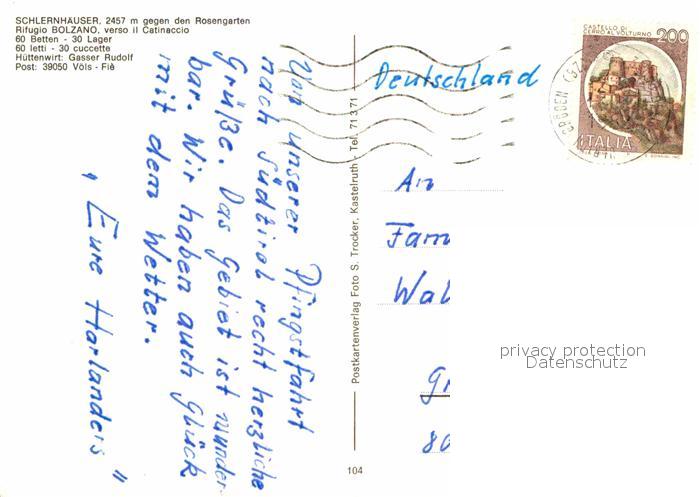 SCHLERNHÄUSER, 2457 m gegen den Rosengarten
Rifugio BOLZANO, verso il Catinaccio
60 Betten - 30 Lager
60 letti - 30 cuccette
Hüttenwirt: Gasser Rudolf
Post: 39050 Völs - Fiè
Von unserer Pfingstfahrt
nach Südtirol recht herzliche
Grüße. Das Gebiet ist wunder-
bar. Wir haben auch Glück
mit dem Wetter.
"Eure Harlanders"
Postkartenverlag Foto S. Trocker, Kastelruth - Tel. 71371
104
CASTELLO DI
CERRO AL VOLTURNO
200
ITALIA
Deutschland
An
Fam
Wal
Gr
80
privacy protection
Datenschutz